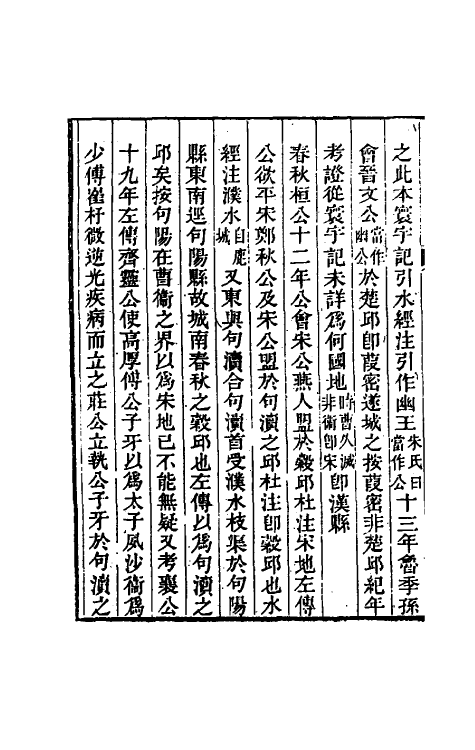 之此本寰宇記引水經注引作幽王朱氏曰當作公十三年魯季孫
會晉文公當作幽公於楚邱卽葭密遂城之按葭密非楚邱紀年
考證從寰宇記未詳爲何國地時曹久滅非衞卽宋卽漢縣
春秋桓公十二年公會宋公燕人盟於穀邱杜注宋地左傳
公欲平宋鄭秋公及宋公盟於句瀆之邱杜注卽穀邱也水
經注濮水自鹿城又東與句瀆合句瀆首受濮水枝渠於句陽
縣東南逕句陽縣故城南春秋之穀邱也左傳以爲句瀆之
邱矣按句陽在曹衞之界以爲宋地已不能無疑又考襄公
十九年左傳齊靈公使高厚傅公子牙以爲太子夙沙衞爲
少傅崔杼微逆光疾病而立之莊公立執公子牙於句瀆之